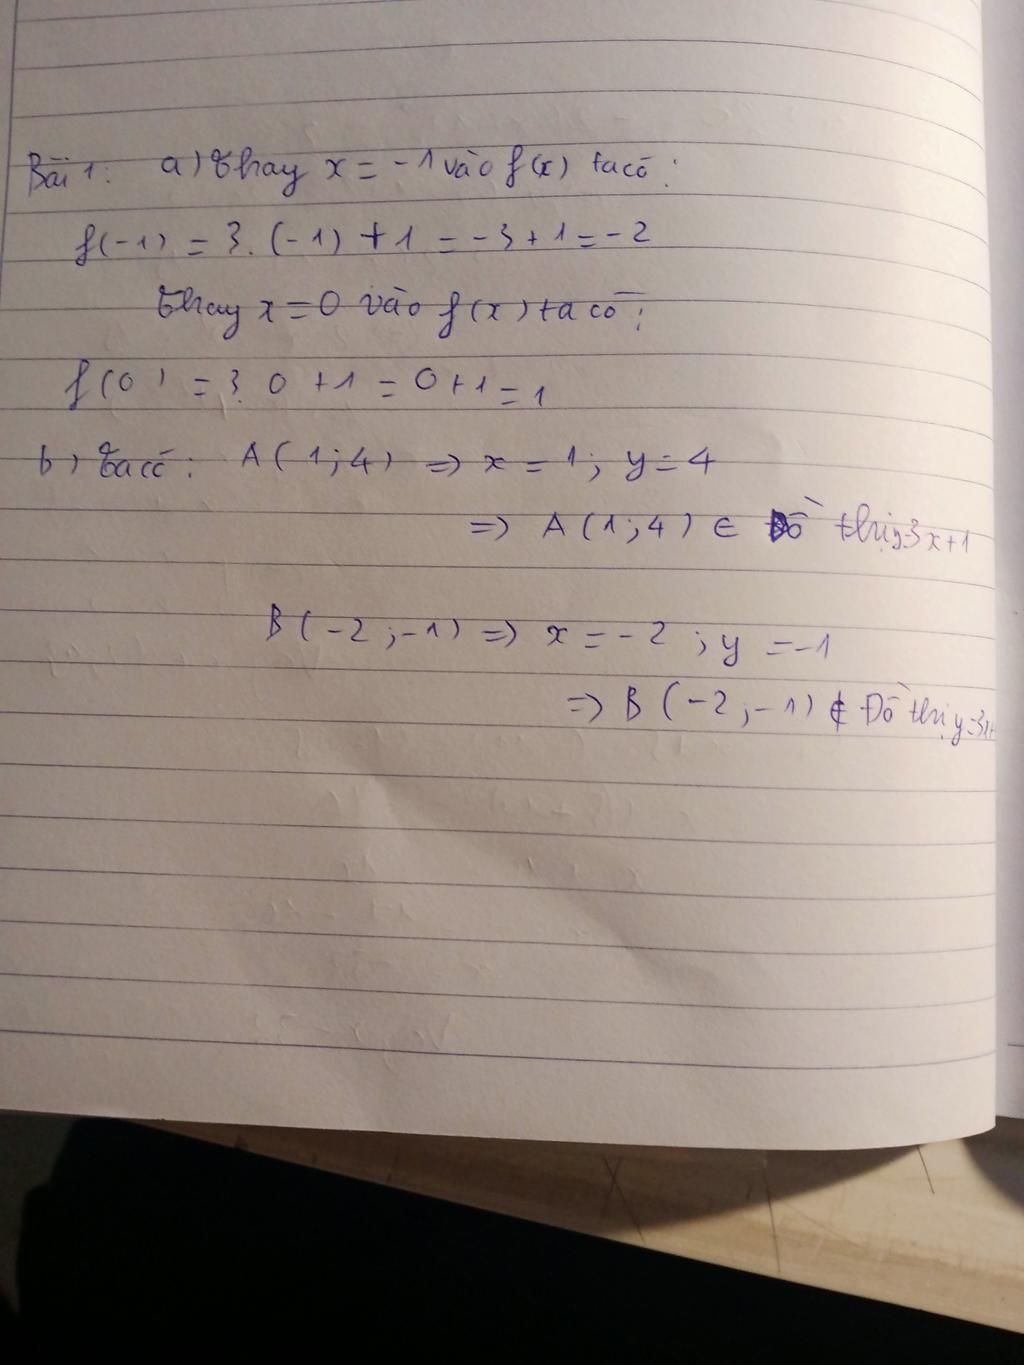 Bài 1: a) Thay x = -1 vào f(x) ta có:
f(-1) = 3. (-1) + 1 = -3 + 1 = -2
Thay x = 0 vào f(x) ta có:
f(0) = 3. 0 + 1 = 0 + 1 = 1
b) Ta có: A(1;4) => x = 1; y = 4
=> A(1;4) ∈ Đồ thị y=3x+1
B(-2;-1) => x = -2; y = -1
=> B(-2;-1) ∉ Đồ thị y=3x+